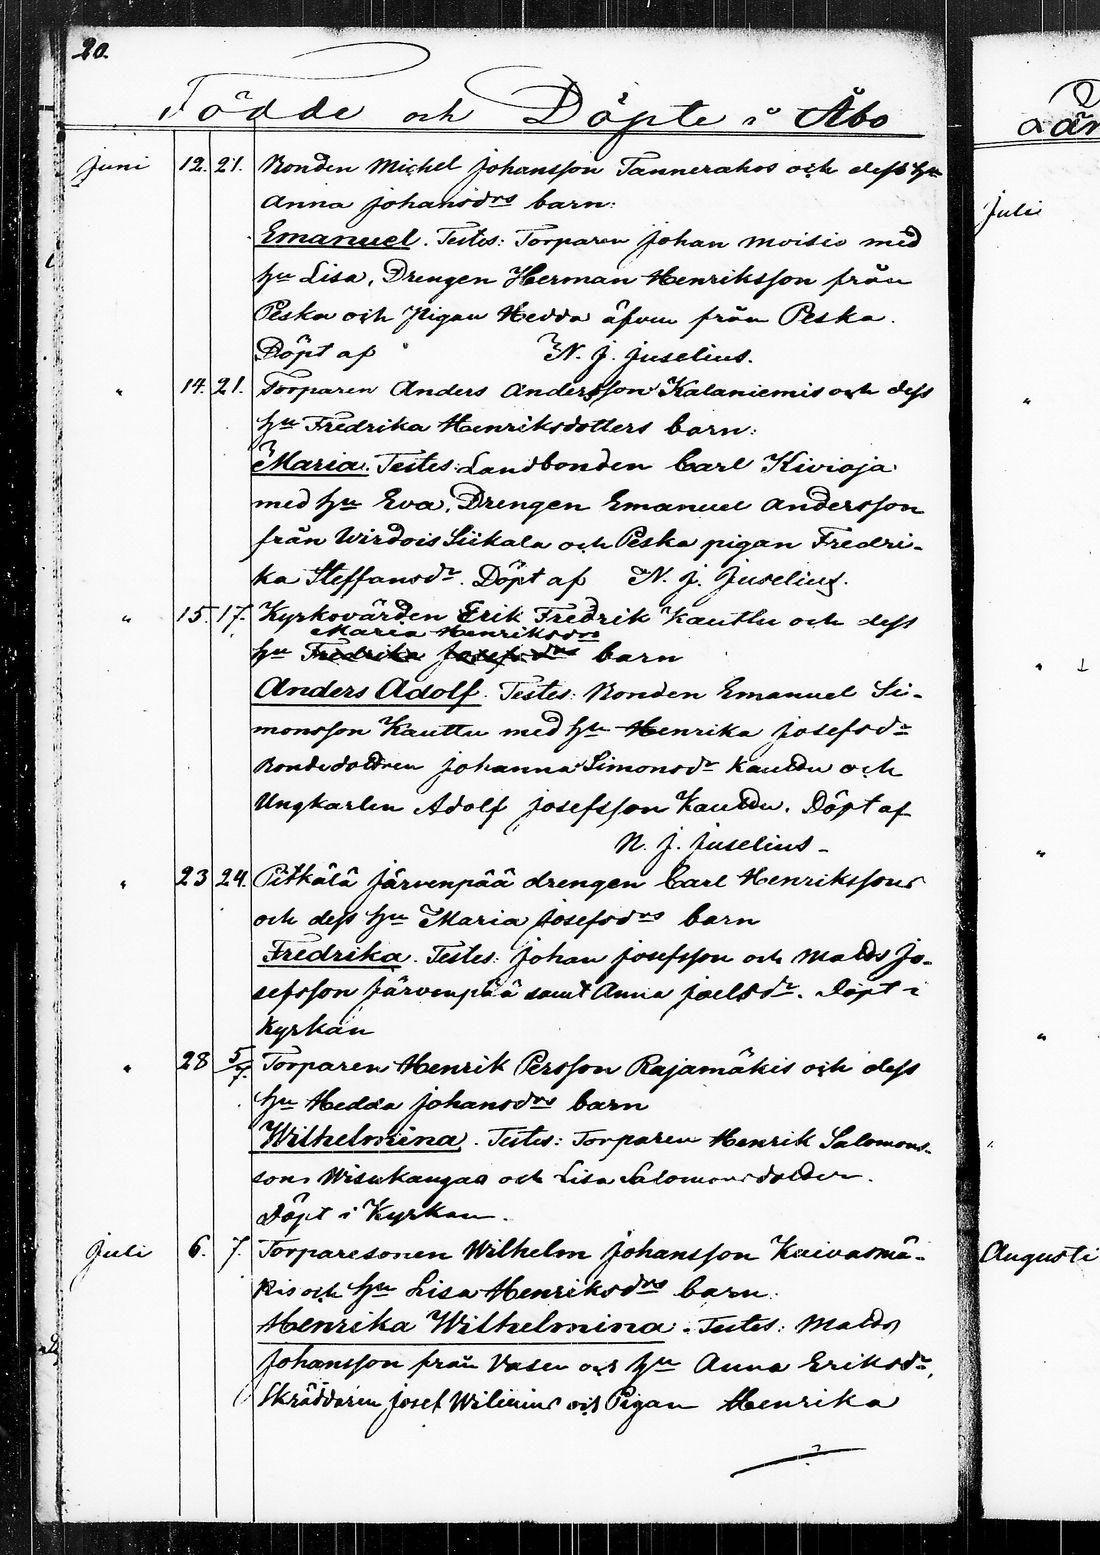 20.
Födde och Döpte i Åbo
Juni 12. 21. Bonden Michel Johansson Tannerahos och dess hu
Anna Johansdrs barn:
Emanuel. Testes: Torparen Johan Moisio med
hu Lisa, Drengen Herman Henriksson från
Peska och Pigan Hedda äfven från Peska.
Döpt af N. J. Juselius.
" 14. 21. Torparen Anders Andersson Kalaniemis och dess
hu Fredrika Henriksdotters barn:
Maria. Testes: Landbonden Carl Kivioja
med hu Eva, Drengen Emanuel Andersson
från Wirdois Siikala och Peska pigan Fredri-
ka Steffansdr. Döpt af N. J. Juselius.
" 15. 17. Kyrkovärden Erik Fredrik Kauttu och dess
Maria Henriksdrs
hu Fredrika Josefsdrs barn
Anders Adolf. Testes: Bonden Emanuel Si-
monsson Kauttu med hu Henrika Josefsdr
Bondedottren Johanna Simonsdr Kauttu och
Ungkarlen Adolf Josefsson Kauttu. Döpt af
N. J. Juselius -
" 23 24. Pitkälä Järvenpää drengen Carl Henrikssons
och dess hu Maria Josefsdrs barn
Fredrika. Testes: Johan Josefsson och Matts Jo-
sefsson Järvenpää samt Anna Joelsdr. Döpt i
Kyrkan
" 28 5/7. Torparen Henrik Persson Rajamäkis och dess
hu Hedda Johansdrs barn
Wilhelmina. Testes: Torparen Henrik Salomons-
son Wisukangas och Lisa Salomonsdotter.
Döpt i Kyrkan.
Juli 6. 7. Torparesonen Wilhelm Johansson Kaivasmä-
kis och hu Lisa Henriksdrs barn:
Henrika Wilhelmina. Testes: Matts
Johansson från Vasen och hu Anna Eriksdr,
Skräddaren Josef och Pigan Henrika
Juli
"
"
"
"
Augusti